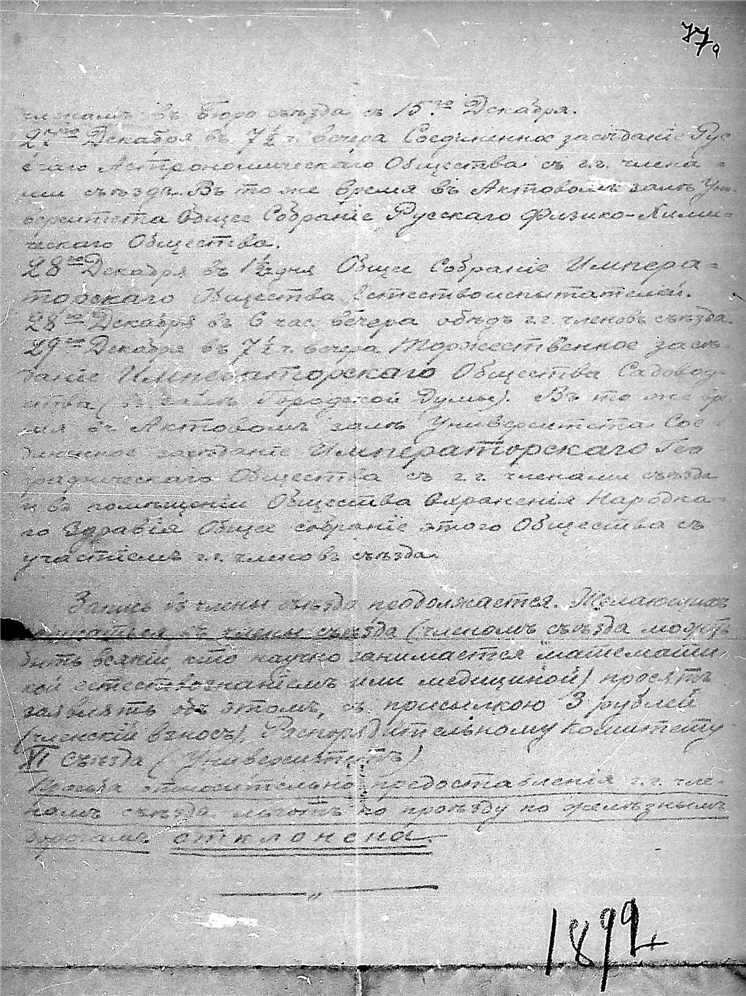 77а
членамъ въ бюро съѣзда съ 15го Декабря.
27го Декабря въ 7½ ч. вечера Соединенное засѣданіе Рус-
скаго Астрономическаго Общества съ г.г. члена-
ми съѣзда. Въ то же время въ Актовомъ залѣ Уни-
верситета Общее Собраніе Русскаго Физико-Хими-
ческаго Общества.
28го Декабря въ 1½ дня Общее Собраніе Импера-
торскаго Общества Естествоиспытателей.
28го Декабря въ 6 час. вечера обѣдъ г.г. членовъ съѣзда.
29го Декабря въ 7½ ч. вечера Торжественное засѣ-
даніе Императорскаго Общества Садовод-
ства (въ залѣ Городской Думы). Въ то же вре-
мя въ Актовомъ залѣ Университета Сое-
диненное засѣданіе Императорскаго Гео-
графическаго Общества съ г.г. членами съѣзда
и въ помѣщеніи Общества Охраненія Народна-
го Здравія Общее собраніе этого Общества съ
участіемъ г.г. членовъ съѣзда.
Запись въ члены съѣзда продолжается. Желающихъ
въ члены съѣзда (членомъ съѣзда можетъ
быть всякій, кто научно занимается математи-
кой естествознаніемъ или медициной) просятъ
заявлять объ этомъ, съ присылкою 3 рублей
(членскій взносъ), Распорядительному Комитету
XI Съѣзда (Университетъ)
относительно предоставленія г.г. чле-
намъ съѣзда льготъ по проѣзду по желѣзнымъ
дорогамъ отклонена.
1899